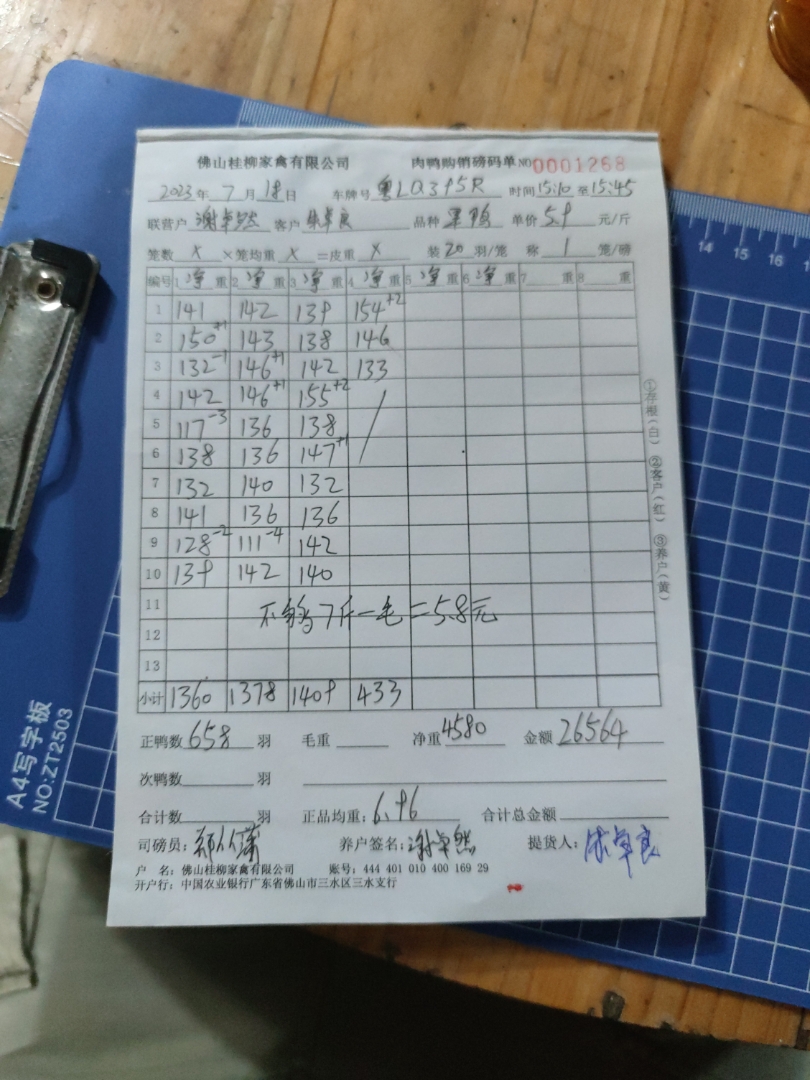 佛山桂柳家禽有限公司 肉鸭购销磅码单 NO 0001268
2023年 7月 18日 车牌号 粤LQ395R 时间 15:10 至 15:45
联营户 谢卓然 客户 陈卓良 品种 单价 5.9 元/斤
笼数 X ×笼均重 X =皮重 X 装 20 羽/笼 称 1 笼/磅
编号 1 净 重 2 净 重 3 净 重 4 净 重 5 净 重 6 净 重 7 重 8 重
1 141 142 139 154+2
2 150+1 143 138 146
3 132-1 146+1 142 133
4 142 146+1 155+2
5 117-3 136 138
6 138 136 147+1
7 132 140 132
8 141 136 136
9 128-2 111-4 142
10 139 142 140
11 不够7斤一毛=5.8元
12
13
小计 1360 1378 1409 433
正鸭数 658 羽 毛重 净重 4580 金额 26564
次鸭数 羽
合计数 羽 正品均重: 6.96 合计总金额
司磅员: 养户签名: 谢卓然 提货人: 陈卓良
户 名: 佛山桂柳家禽有限公司 账号: 444 401 010 400 169 29
开户行: 中国农业银行广东省佛山市三水区三水支行
①存根(白) ②客户(红) ③养户(黄)
A4写字板
NO:ZT2503
14 15 16
13 14 15 16